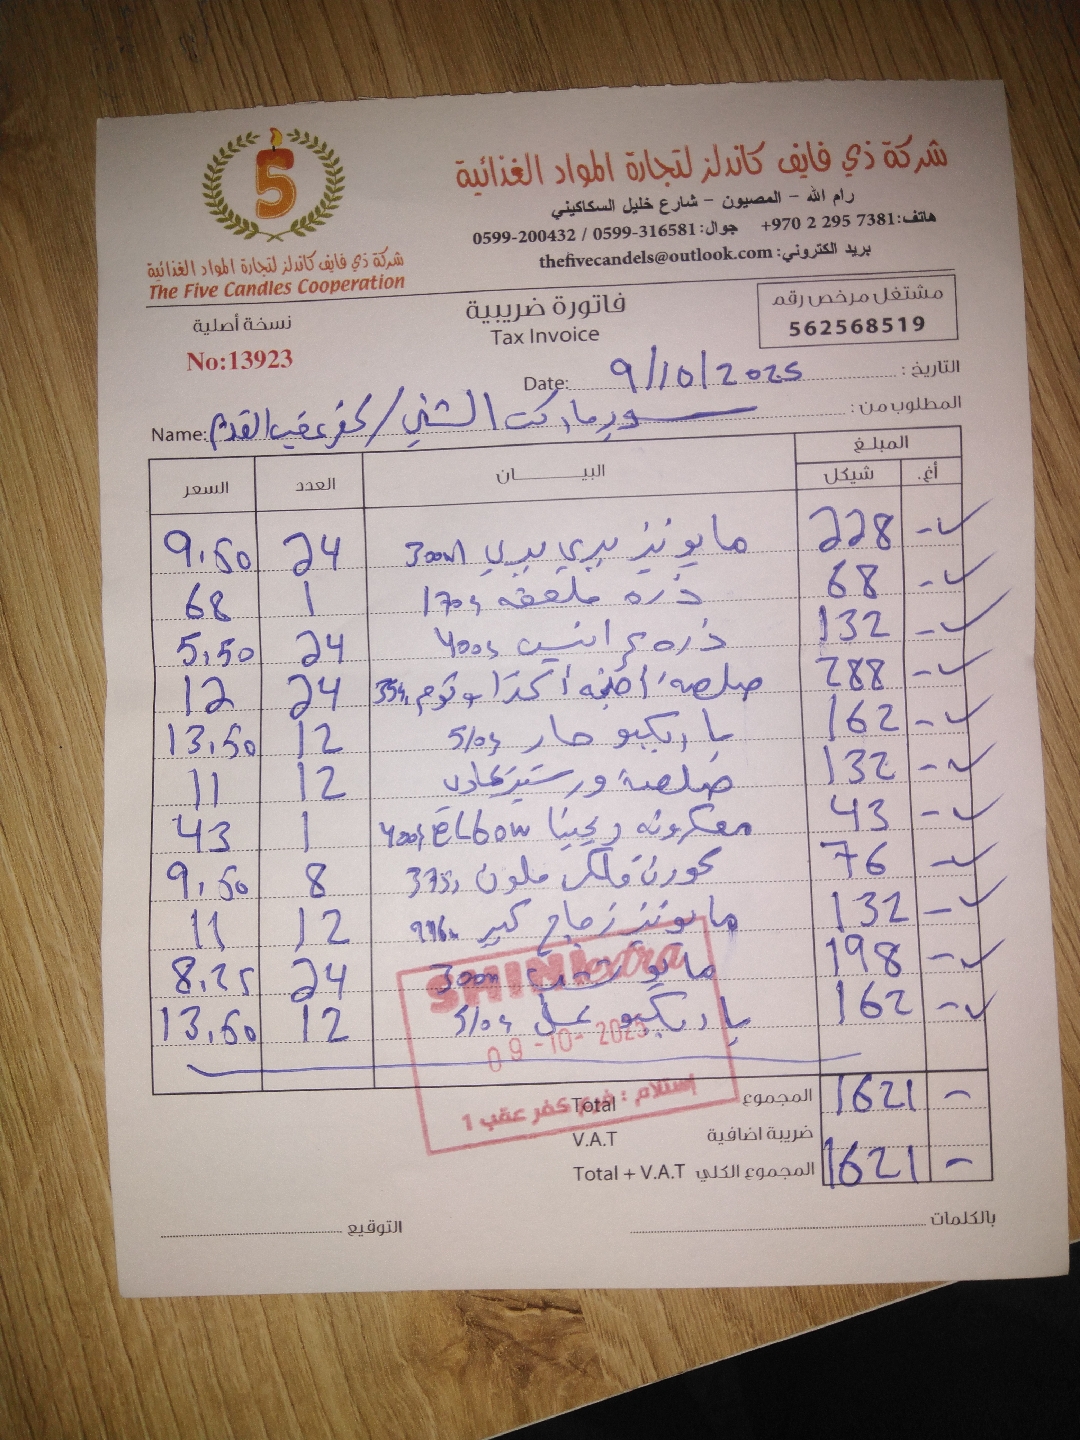 شركة ذي فايف كاندلز لتجارة المواد الغذائية
رام الله - المصيون - شارع خليل السكاكيني
هاتف: +970 2 295 7381 جوال: 0599-316581 / 0599-200432
بريد الكتروني: thefivecandels@outlook.com
5
شركة ذي فايف كاندلز لتجارة المواد الغذائية
The Five Candles Cooperation
نسخة أصلية
No:13923
فاتورة ضريبية
Tax Invoice
مشتغل مرخص رقم
562568519
التاريخ: 9/10/2025 Date:
المطلوب من: سوبرماركت الشني / كفر عقب القديم Name:
المبلغ البيــــــان العدد السعر
أغ. شيكل
- 228 مايونيز بيري بيري 300ml 24 9,50
- 68 ذره ملعقه 170g 1 68
- 132 ذره 400g 24 5,50
- 288 صلصة اكسترا وثوم 24 12
- 162 باربكيو حار 510g 12 13,50
- 132 صلصة ورستر 12 11
- 43 معكرونه ريجينا Elbow 400g 1 43
- 76 كورن فلكس ملون 375g 8 9,50
- 132 مايونيز زجاج كبير 12 11
- 198 مايونيز 300m 24 8,25
- 162 باربكيو عسل 510g 12 13,50
SHINI extra
09-10-2025
إستلام : فرع كفر عقب 1
المجموع Total 1621 -
ضريبة اضافية V.A.T
المجموع الكلي Total + V.A.T 1621 -
بالكلمات
التوقيع